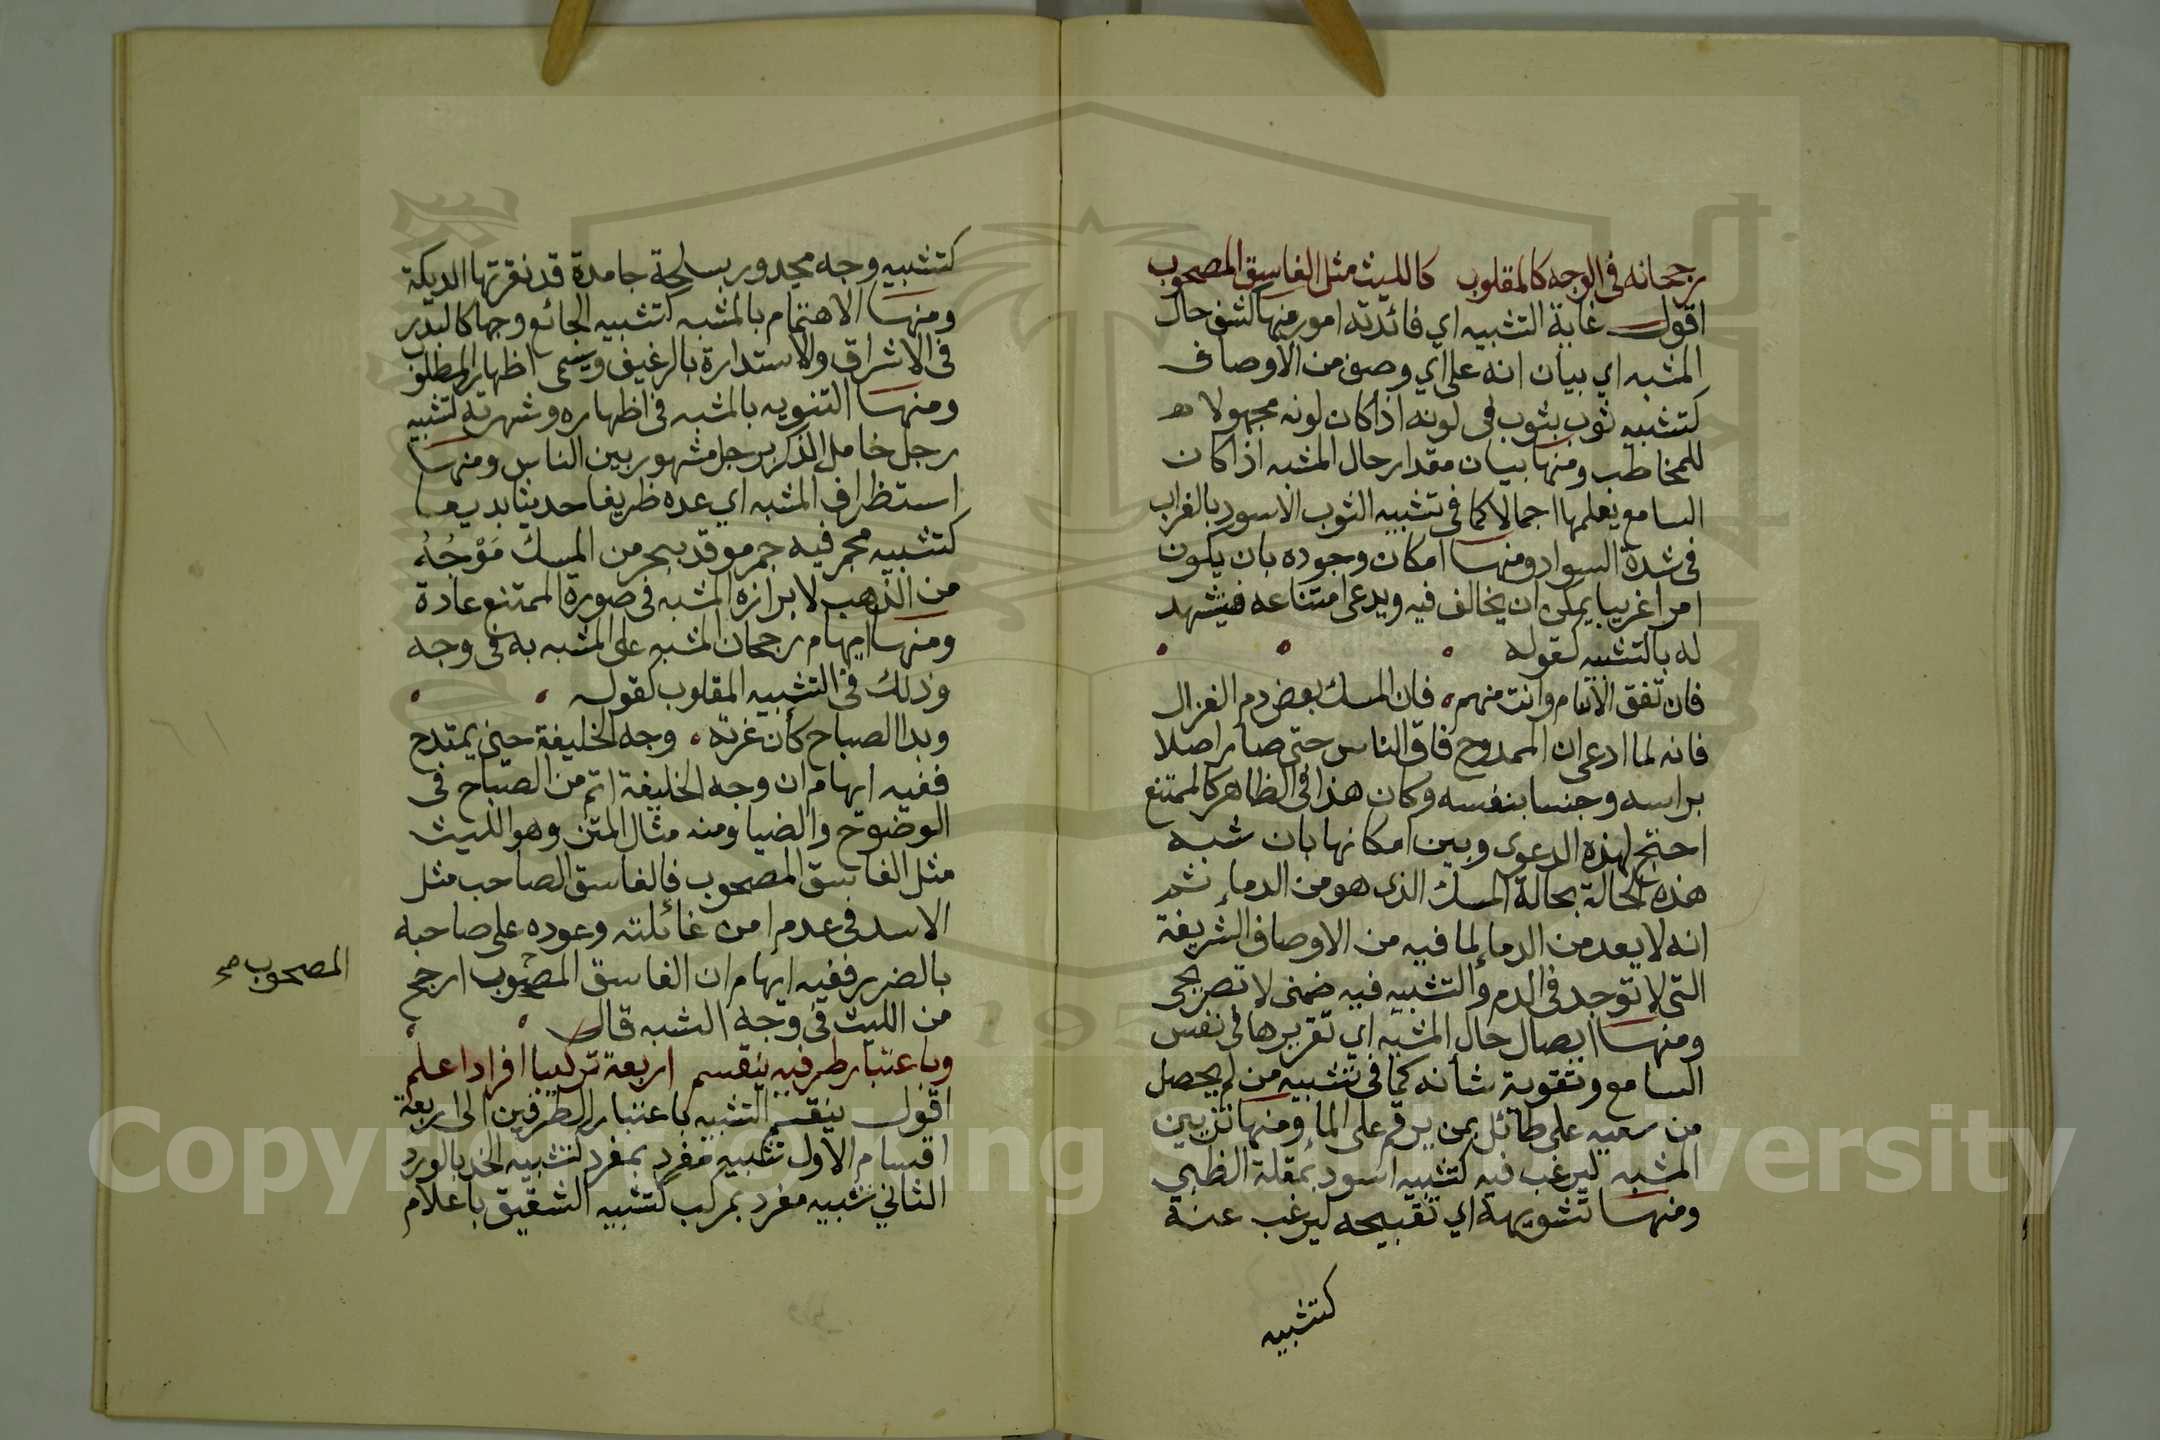 رجحانه في الوجه كالمقلوب كالليث مثل الفاسق المصحوب
اقول غاية التشبيه اي فائدته امور منها كشف حال
المشبه اي بيان انه على اي وصف من الاوصاف
كتشبيه ثوب بثوب في لونه اذا كان لونه مجهولا
للمخاطب ومنها بيان مقدار حال المشبه اذا كان
السامع يعلمها اجمالا كما في تشبيه الثوب الاسود بالغراب
في شدة السواد ومنها امكان وجوده بان يكون
امرا غريبا يمكن ان يخالف فيه ويدعى امتناعه فيشهد
له بالتشبيه كقوله
فان تفق الانام وانت منهم فان المسك بعض دم الغزال
فانه لما ادعى ان الممدوح فاق الناس حتى صار اصلا
براسه وجنسا بنفسه وكان هذا في الظاهر كالممتنع
احتج لهذه الدعوى وبين امكانها بان شبه
هذه الحالة بحالة المسك الذي هو من الدماء ثم
انه لا يعد من الدماء لما فيه من الاوصاف الشريفة
التي لا توجد في الدم والتشبيه فيه ضمني لا تصريحي
ومنها ايصال حال المشبه اي تقريرها في نفس
السامع وتقوية شأنه كما في تشبيه من لم يحصل
من سعيه على طائل بمن يرقم على الماء ومنها تزيين
المشبه ليرغب فيه كتشبيه اسود بمقلة الظبي
ومنها تشويهه اي تقبيحه ليرغب عنه
كتشبيه
كتشبيه وجه مجدور بسلحة جامدة قد نقرتها الديكة
ومنها الاهتمام بالمشبه كتشبيه الجائع وجها كالبدر
في الاشراق والاستدارة بالرغيف ويسمى اظهار المطلوب
ومنها التنويه بالمشبه في اظهاره وشهرته كتشبيه
رجل خامل الذكر برجل مشهور بين الناس ومنها
استظراف المشبه اي عده ظريفا حديثا بديعا
كتشبيه مجمر فيه جمر موقد ببحر من المسك مَوْجُهُ
من الذهب لابرازه المشبه في صورة الممتنع عادة
ومنها ايهام رجحان المشبه على المشبه به في وجه
وذلك في التشبيه المقلوب كقوله
وبدا الصباح كأن غرته وجه الخليفة حين يمتدح
ففيه ايهام ان وجه الخليفة اتم من الصباح في
الوضوح والضيا ومنه مثال المتن وهو الليث
مثل الفاسق المصحوب فالفاسق الصاحب مثل
الاسد في عدم امن غائلته وعوده على صاحبه
بالضرر ففيه ايهام ان الفاسق المصحوب ارجح
المصحوب صح
من الليث في وجه الشبه قال
وباعتبار طرفيه ينقسم اربعة تركيبا افرادا علم
اقول ينقسم التشبيه باعتبار الطرفين الى اربعة
اقسام الاول تشبيه مفرد بمفرد كتشبيه الخد بالورد
الثاني تشبيه مفرد بمركب كتشبيه الشقيق باعلام
Copyright © King Saud University